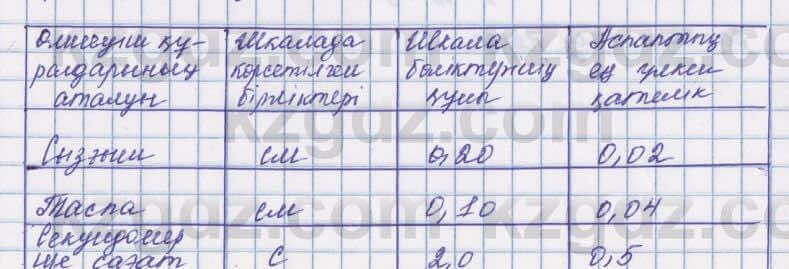 Өлшеуіш құ- Шкалада Шкала Аспаптың
ралдарының көрсетілген бөліктерінің ең үлкен
аталуы бірліктері құны қателік
Сызғыш см 0,20 0,02
Таспа см 0,10 0,04
Секундомер
не сағат с 2,0 0,5
kzgdz.com
kzgdz.com